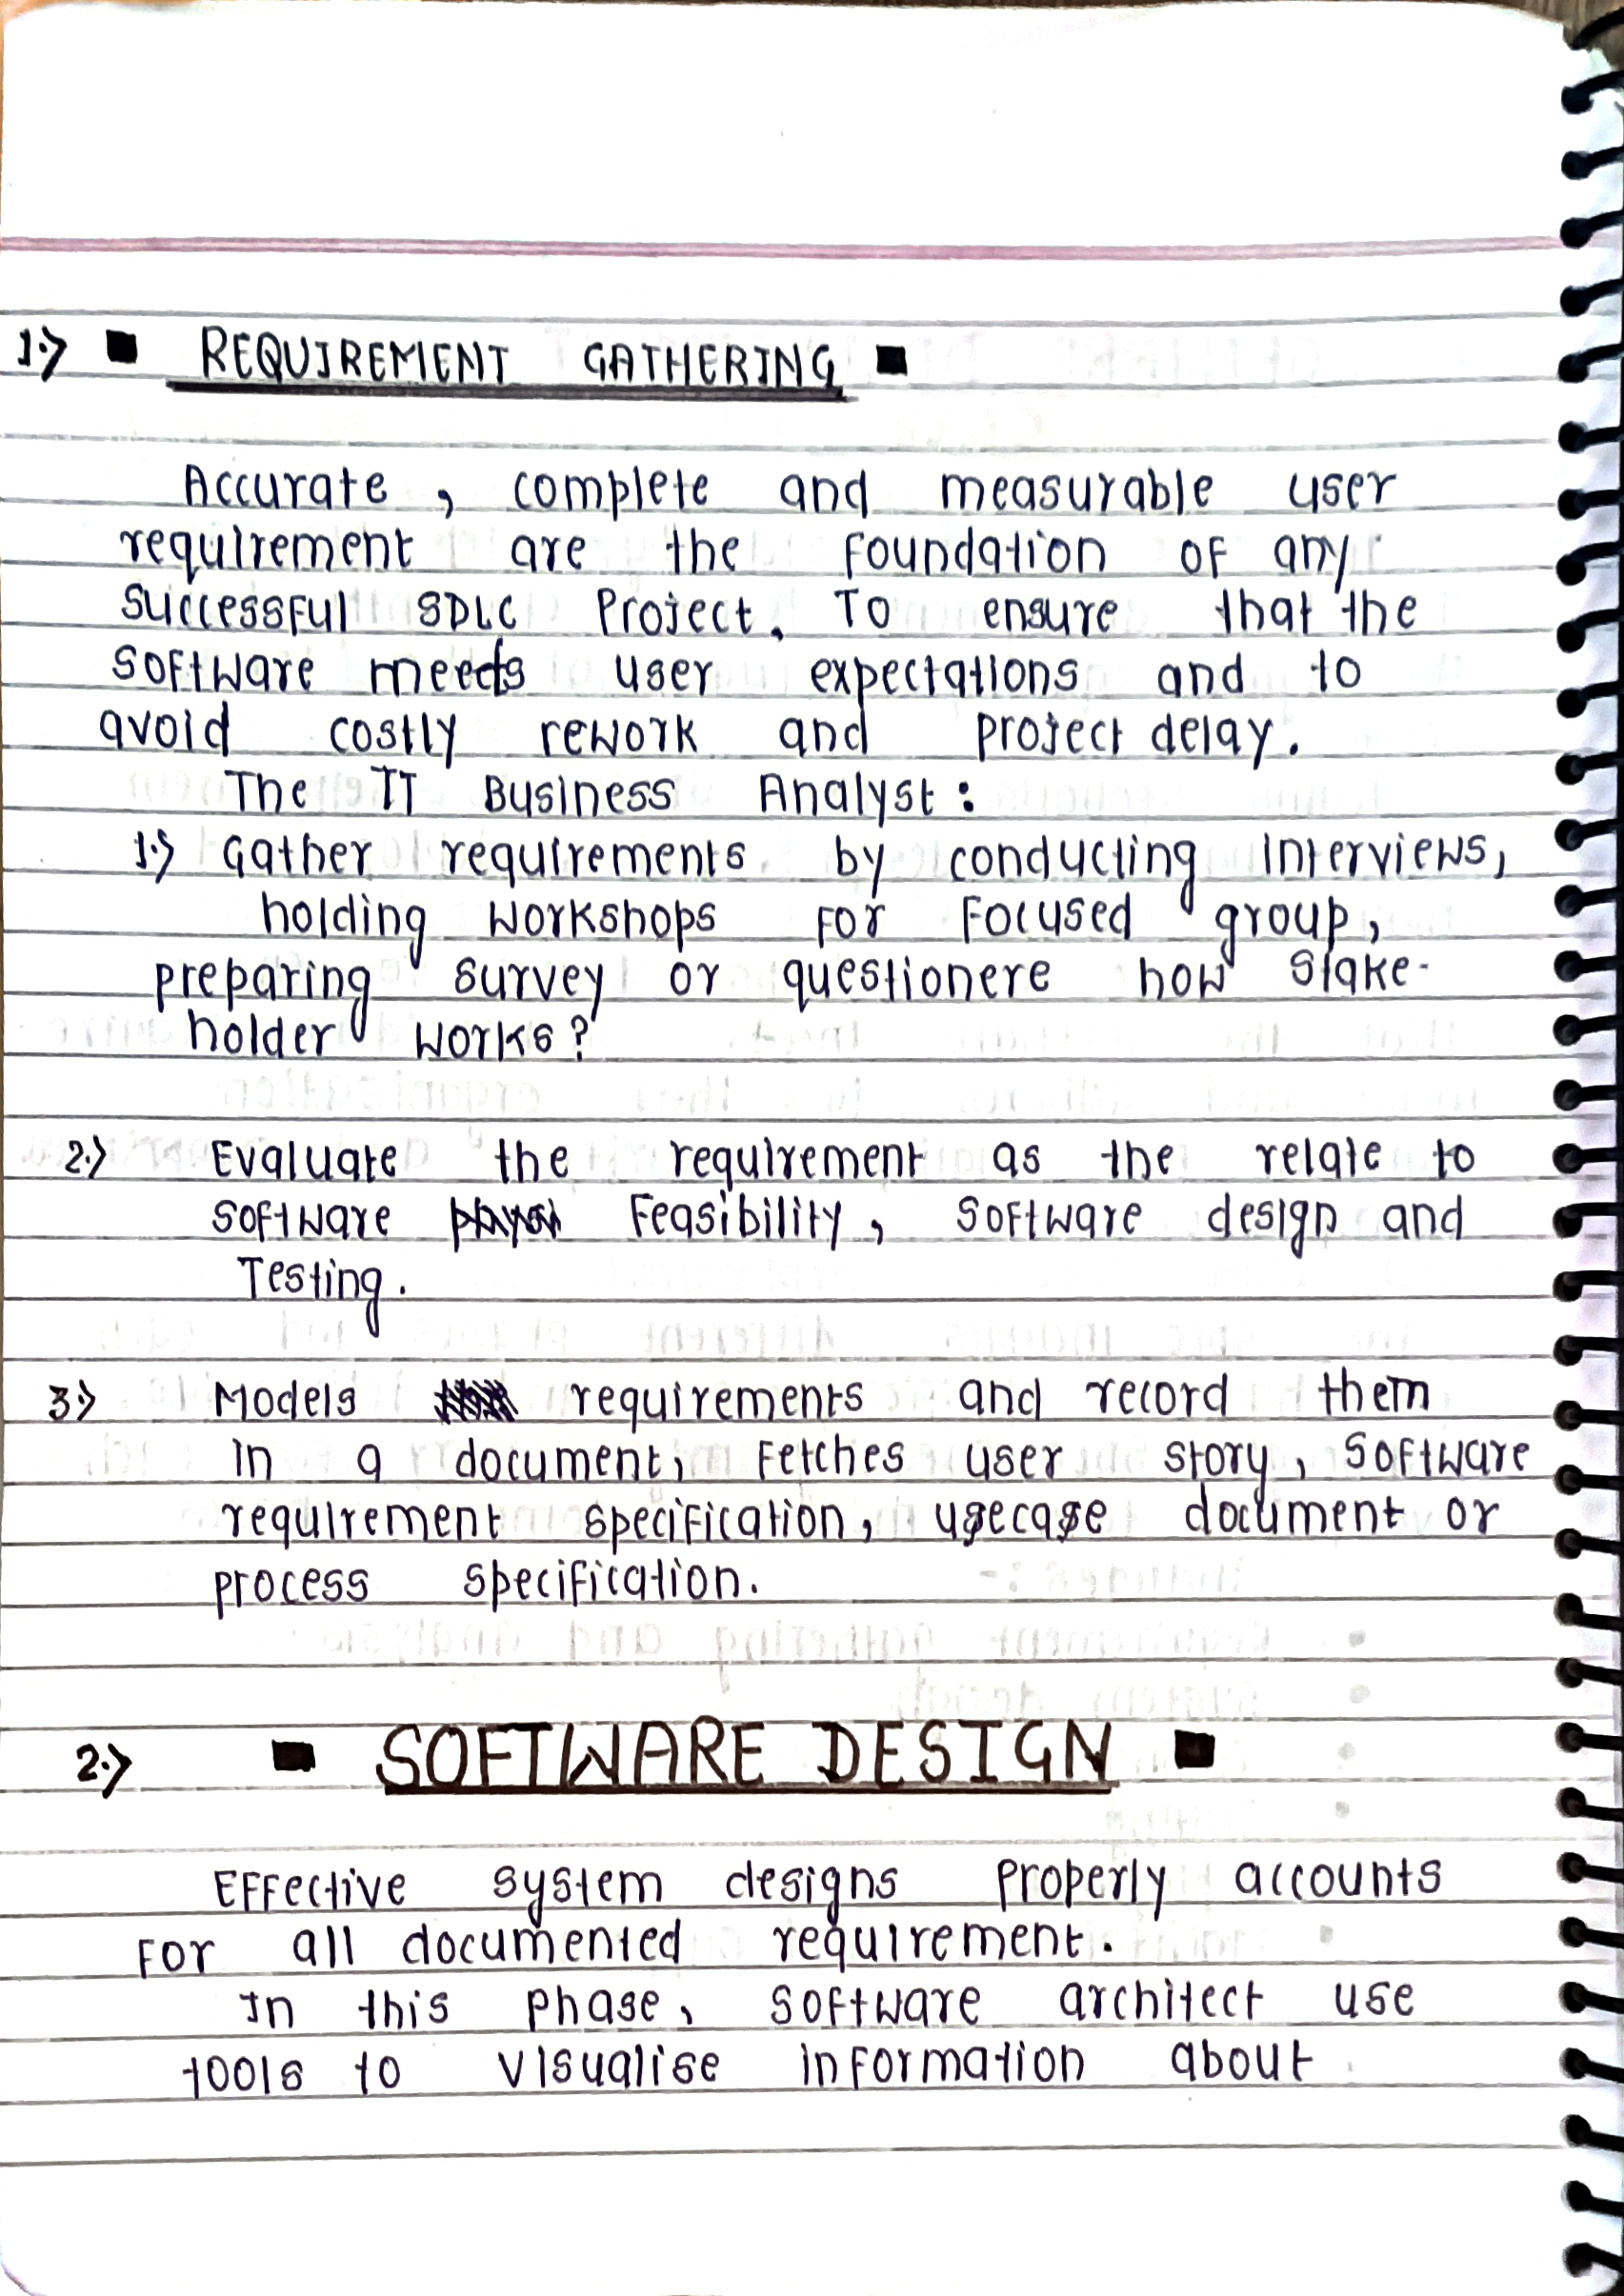 1.> ▪ REQUIREMENT GATHERING ▪
Accurate , complete and measurable user
requirement are the foundation of any
successful SDLC Project. To ensure that the
software meets user expectations and to
avoid costly rework and project delay.
The IT Business Analyst :
1.> Gather requirements by conducting interviews,
holding workshops for focused group,
preparing survey or questionere how stake-
holder works?
2.> Evaluate the requirement as the relate to
software feasibility, software design and
Testing.
3.> Models requirements and record them
in a document, fetches user story, software
requirement specification, usecase document or
process specification.
2.> ▪ SOFTWARE DESIGN ▪
Effective system designs properly accounts
for all documented requirement.
In this phase, software architect use
tools to visualise information about